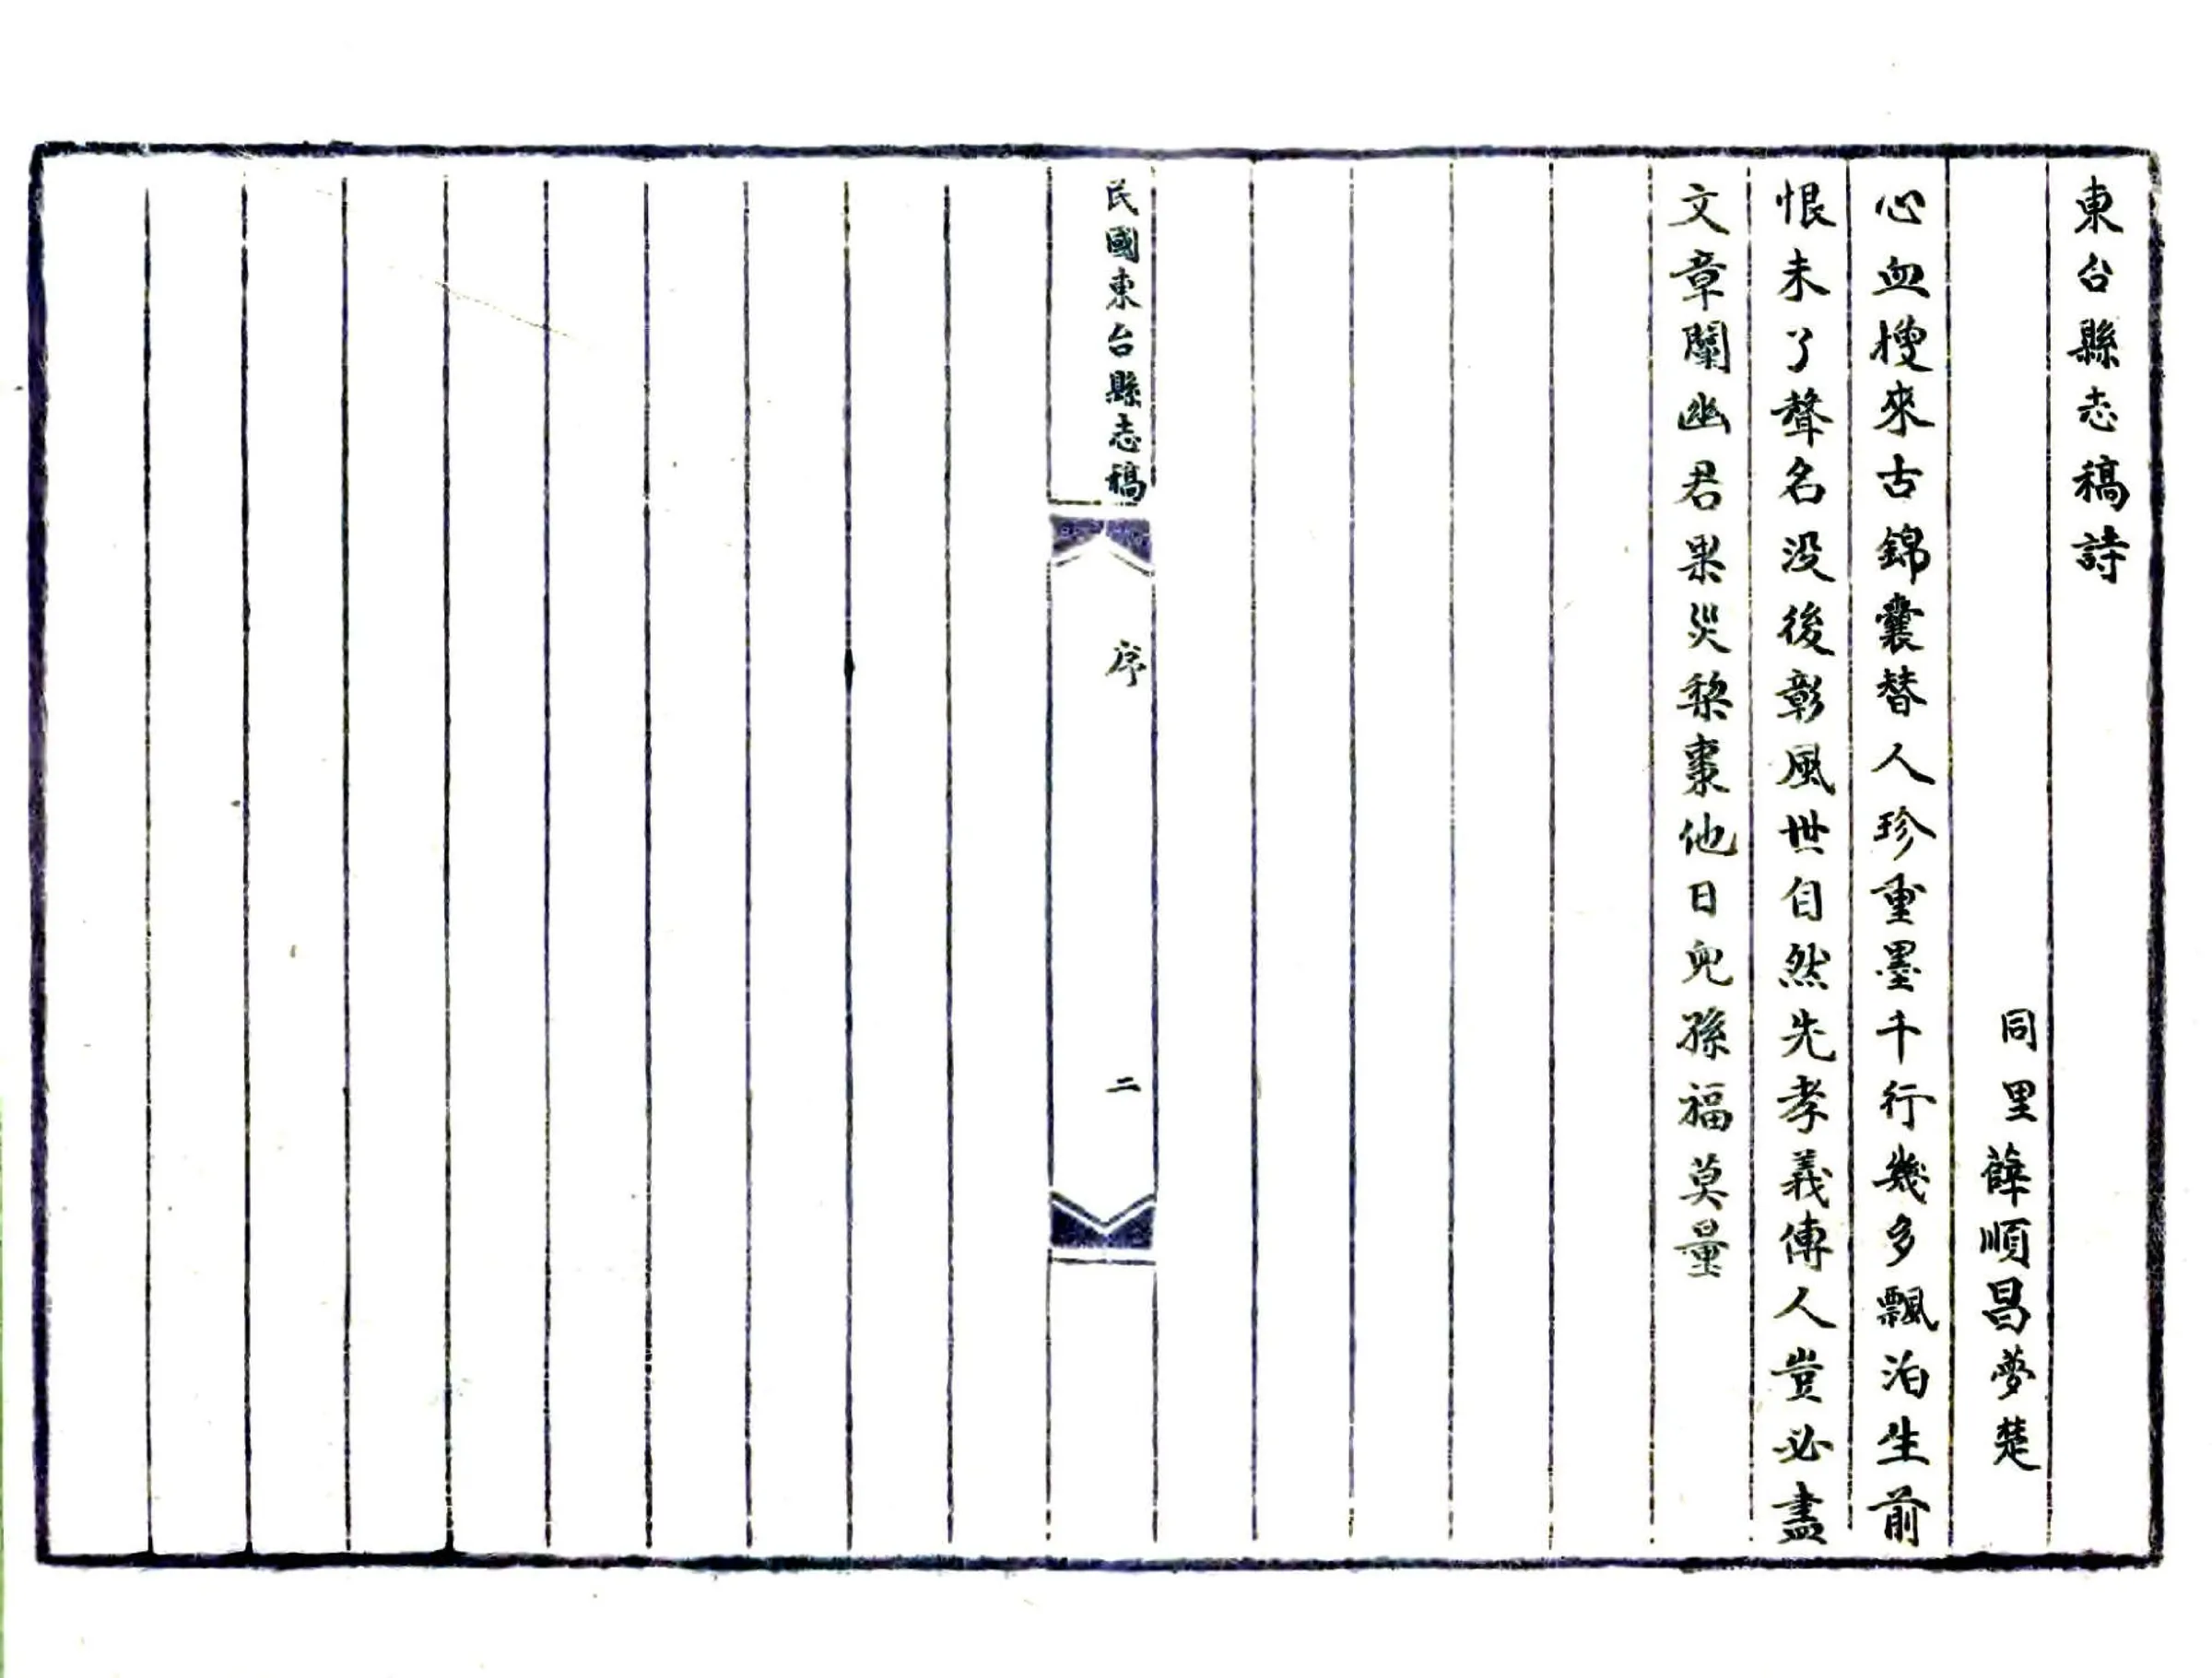 東台縣志稿詩
同里薛順昌夢楚
心血搜來古錦囊替人珍重墨千行幾多飄泊生前
恨未了聲名没後彰風世自然先孝義傳人豈必盡
文章闡幽君果災梨棗他日兒孫福莫量
民國東台縣志稿
序
二